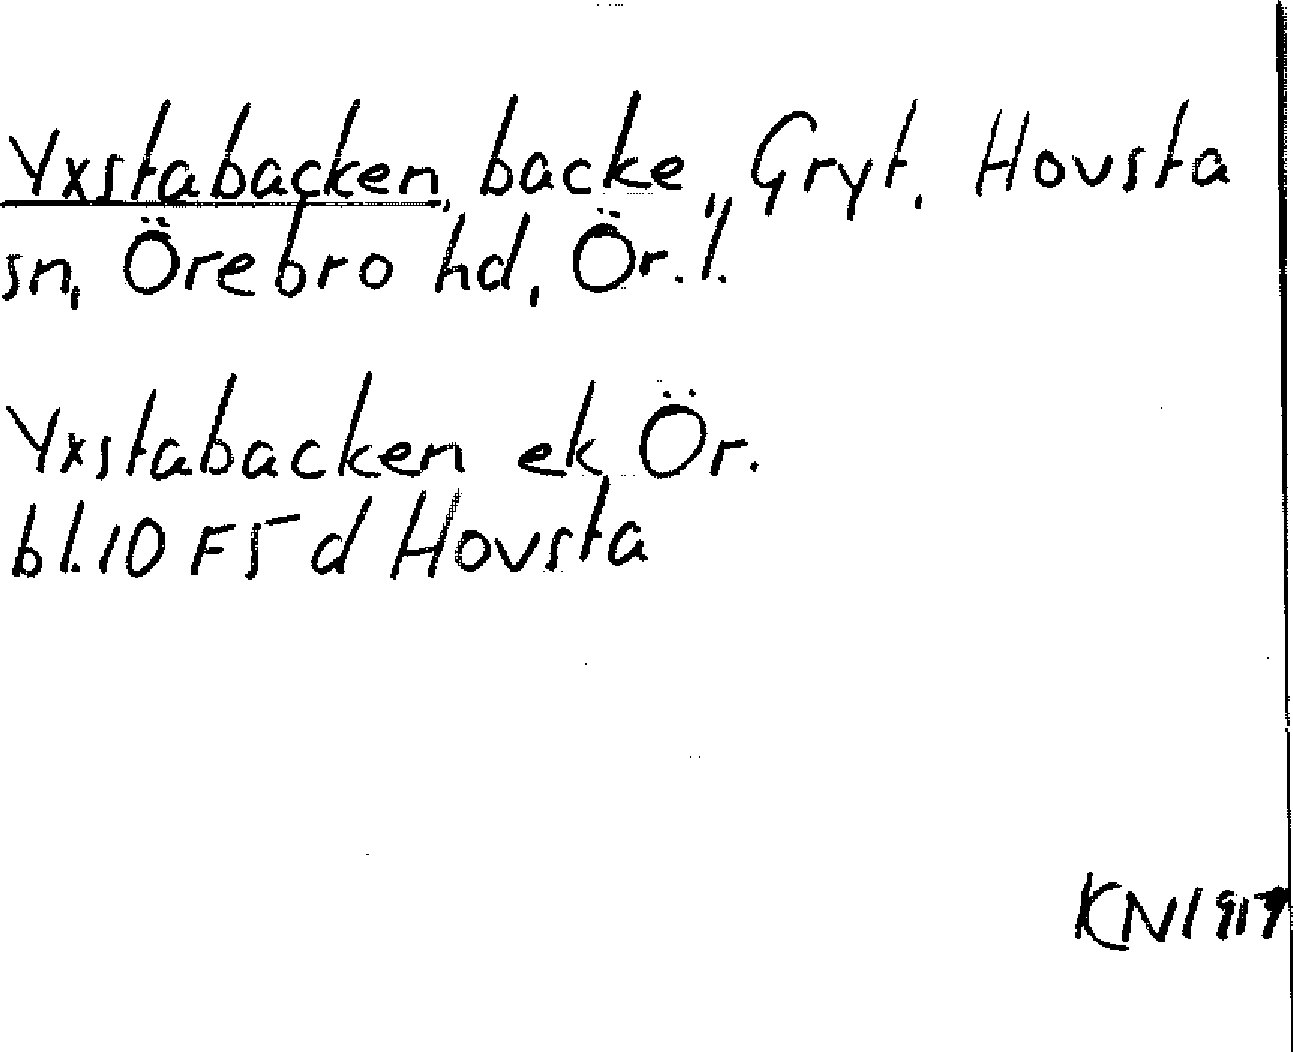 Yxstabacken, backe, Gryt. Hovsta
sn, Örebro hd, Ör. l.
Yxstabacken ek Ör.
bl. 10 F 5 d Hovsta
KN 1917